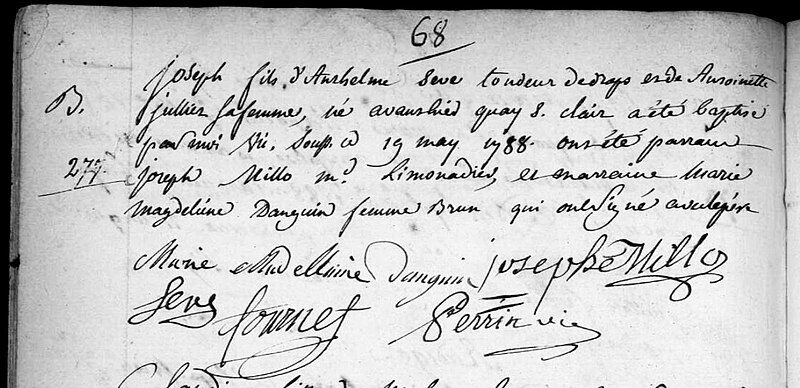 68
joseph fils d'Anthelme Seve tondeur de draps et de Antoinette
B. jullier sa femme, né avanthied quay S. clair a été baptisé
par moi Vic. Souss. ce 19 may 1788. ont été parrain
277. joseph Millo m.d Limonadier, et marraine Marie
magdeleine Danguin femme Brun qui ont Signé avec le père
Marie Madelleine Danguin joseph Millo
Seve fournet Perrin vic